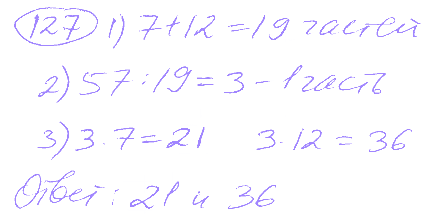 127 1) 7+12=19 частей
2) 57:19=3 – 1 часть
3) 3·7=21 3·12=36
Ответ: 21 и 36